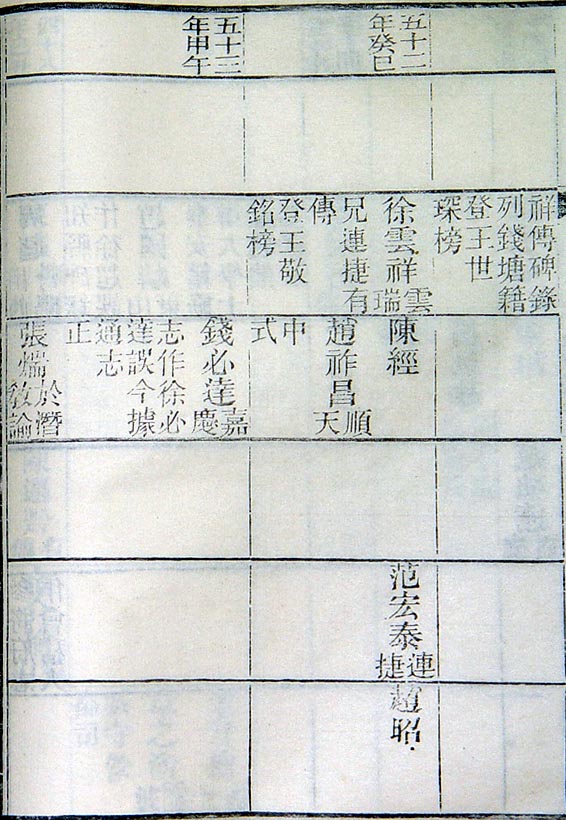 祥傳碑錄
列錢塘籍
登王世
琛榜
五十二
年癸巳
徐雲祥雲
瑞
兄連捷有
傳
登王敬
銘榜
陳經
趙祚昌順
天
中
式
范宏泰連
捷
趙昭
五十三
年甲午
錢必達嘉
慶
志作徐必
達誤今據
通志
正
張煓於潛
教諭